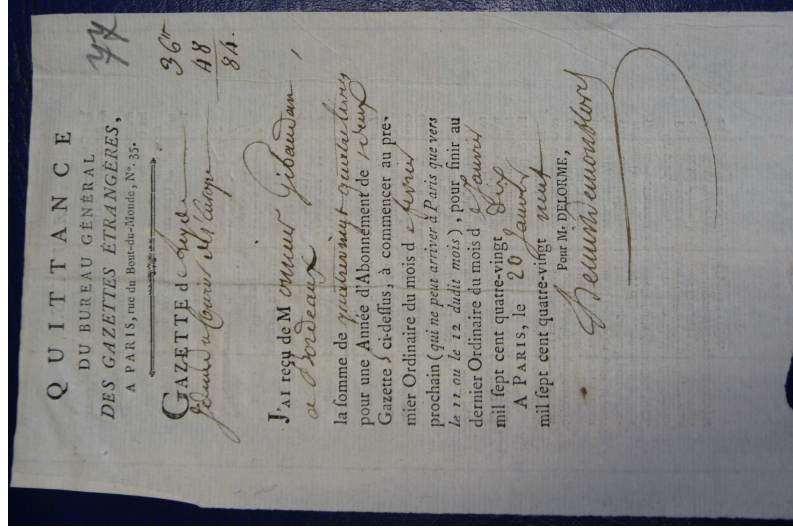 77
QUITTANCE
DU BUREAU GÉNÉRAL
DES GAZETTES ÉTRANGÈRES,
A PARIS, rue du Bout-du-Monde, N°. 35.
GAZETTE de Leyde 36
48
84.
J'AI reçu de M onsieur Gibaudan,
de Bordeaux
la ſomme de quatrevingt quatre livres
pour une Année d'Abonnement de deux
Gazettes ci-deſſus, à commencer au pre-
mier Ordinaire du mois de fevrier
prochain (qui ne peut arriver à Paris que vers
le 11 ou le 12 dudit mois), pour finir au
dernier Ordinaire du mois de Janvier
mil ſept cent quatre-vingt Dix
A PARIS, le 20 Janvier
mil ſept cent quatre-vingt neuf
Pour Mr. DELORME,